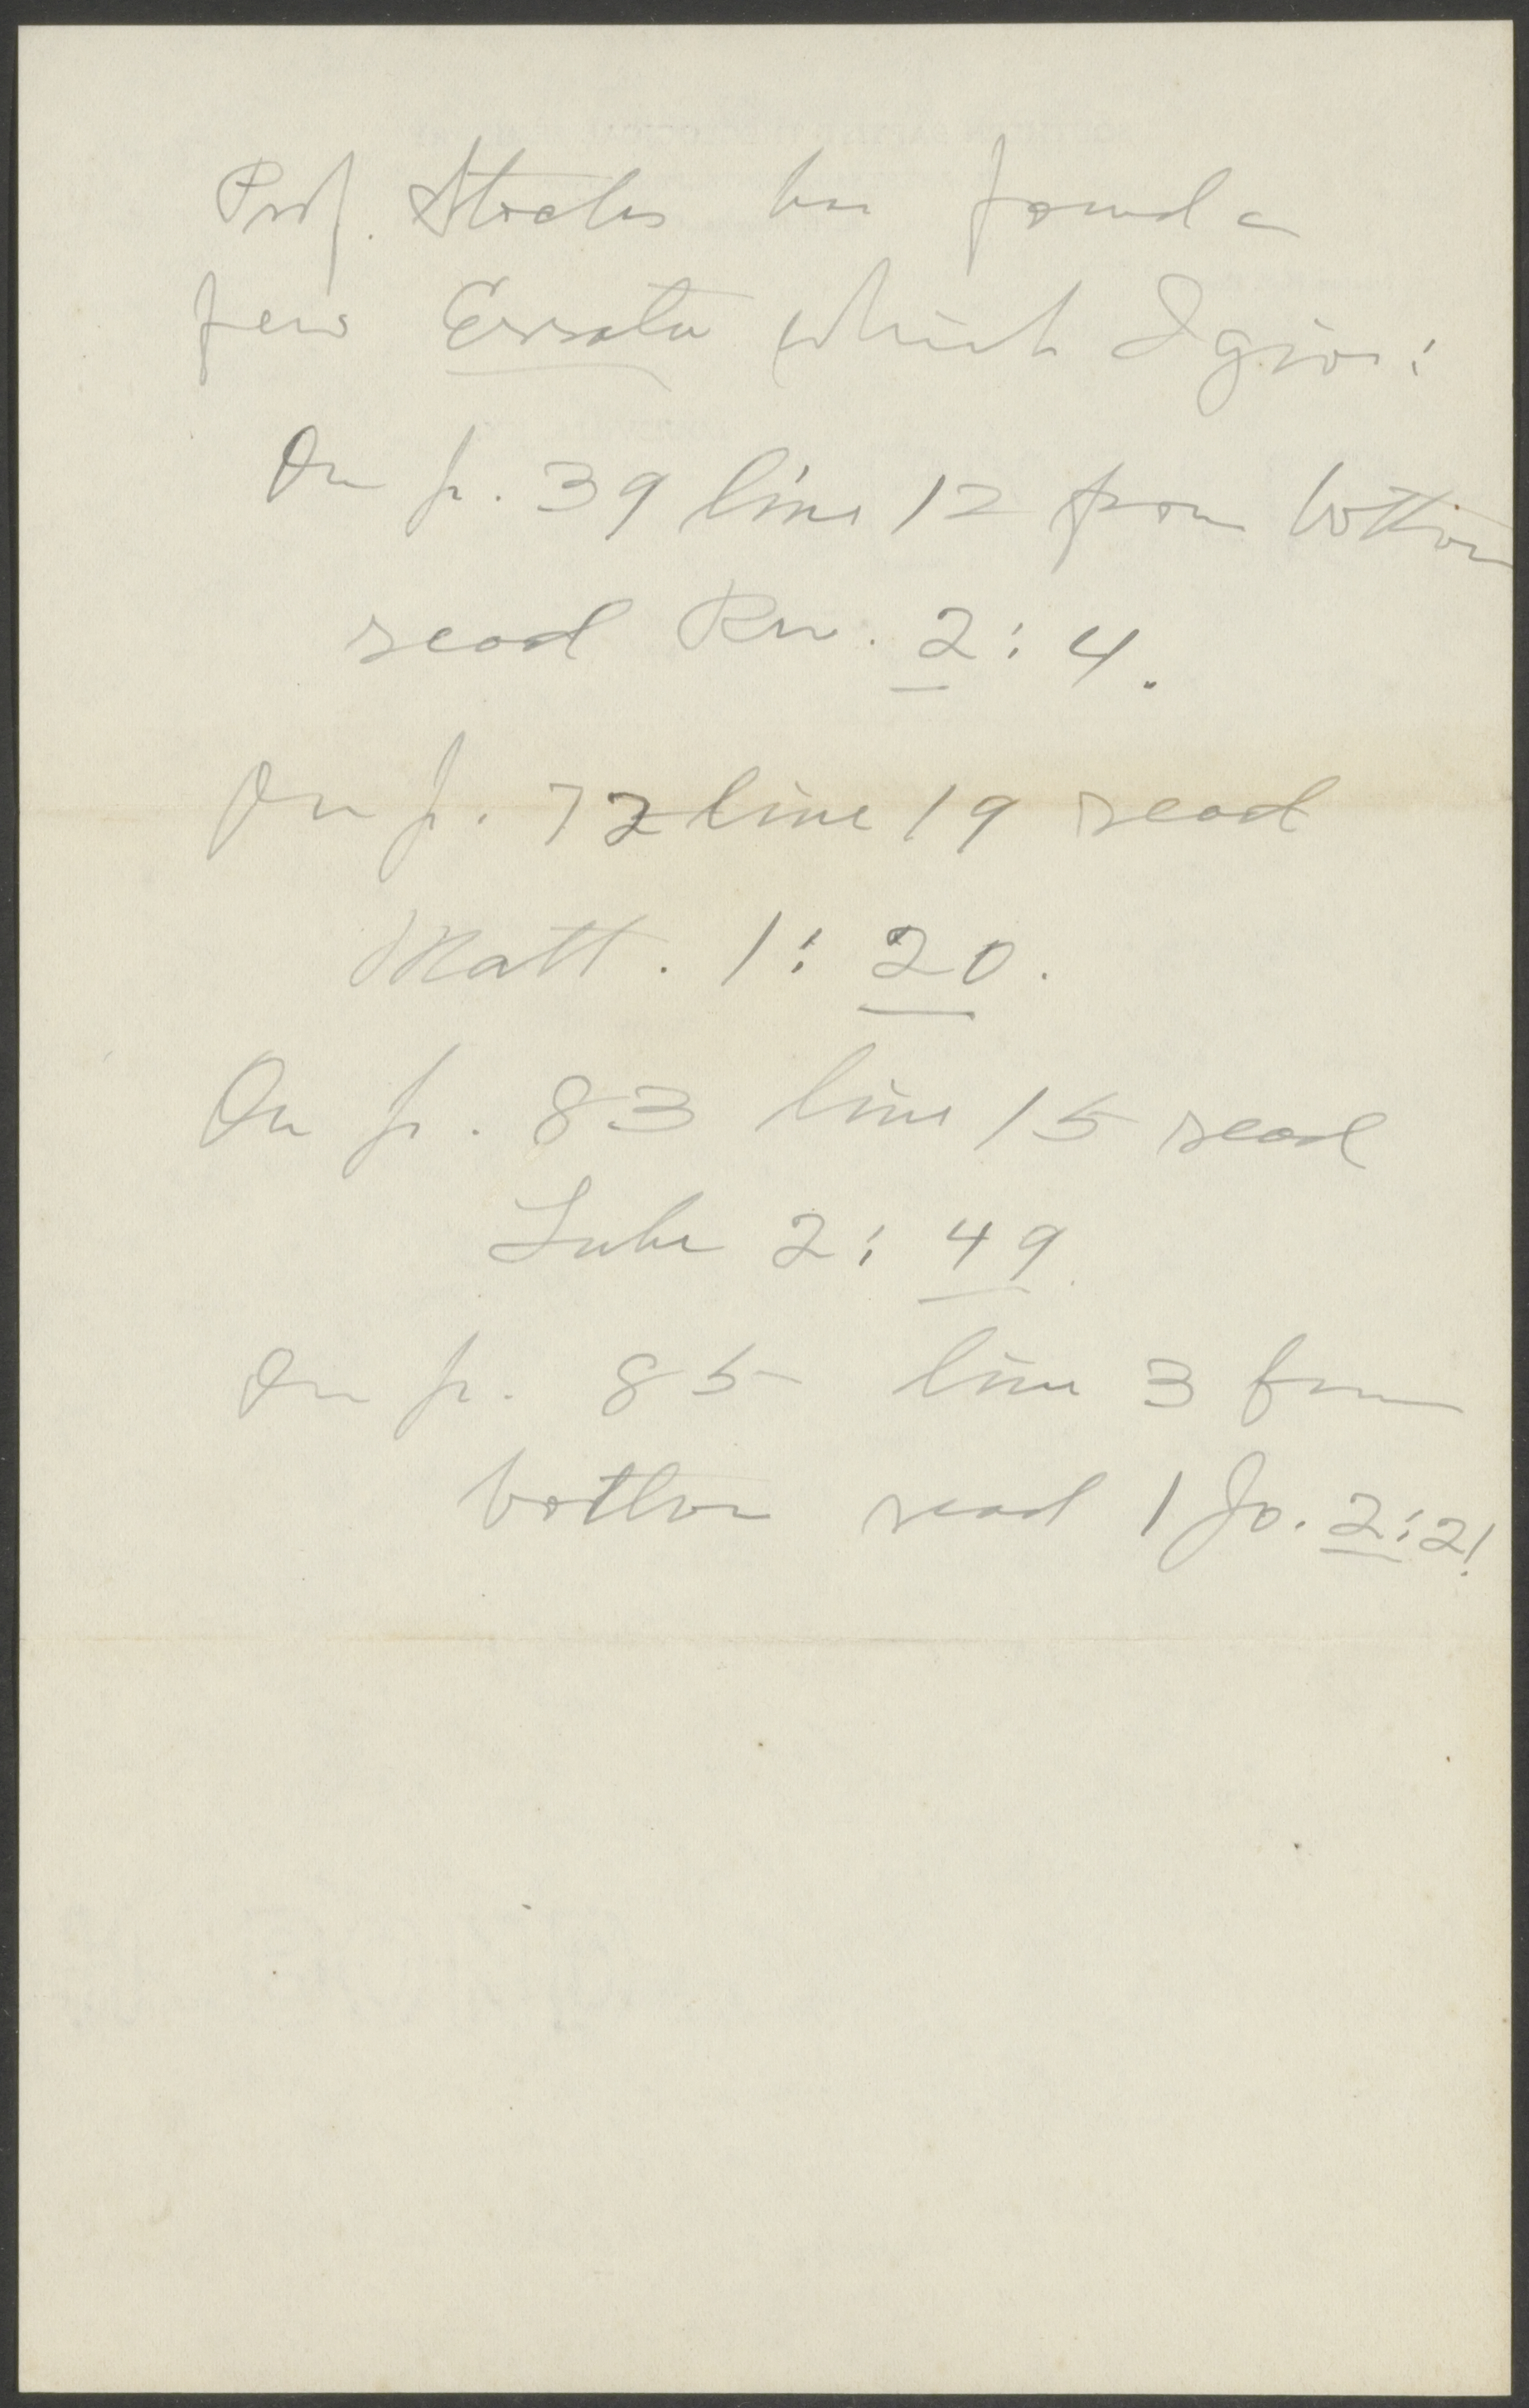 Prof. Stoeckes has found a
few Errata which I give:
On p. 39 line 12 from bottom
read Rev. 2:4.
On p. 72 line 19 read
Matt. 1:20.
On p. 83 line 15 read
Luke 2:49.
On p. 85 line 3 from
bottom read 1 Jo. 2:2!